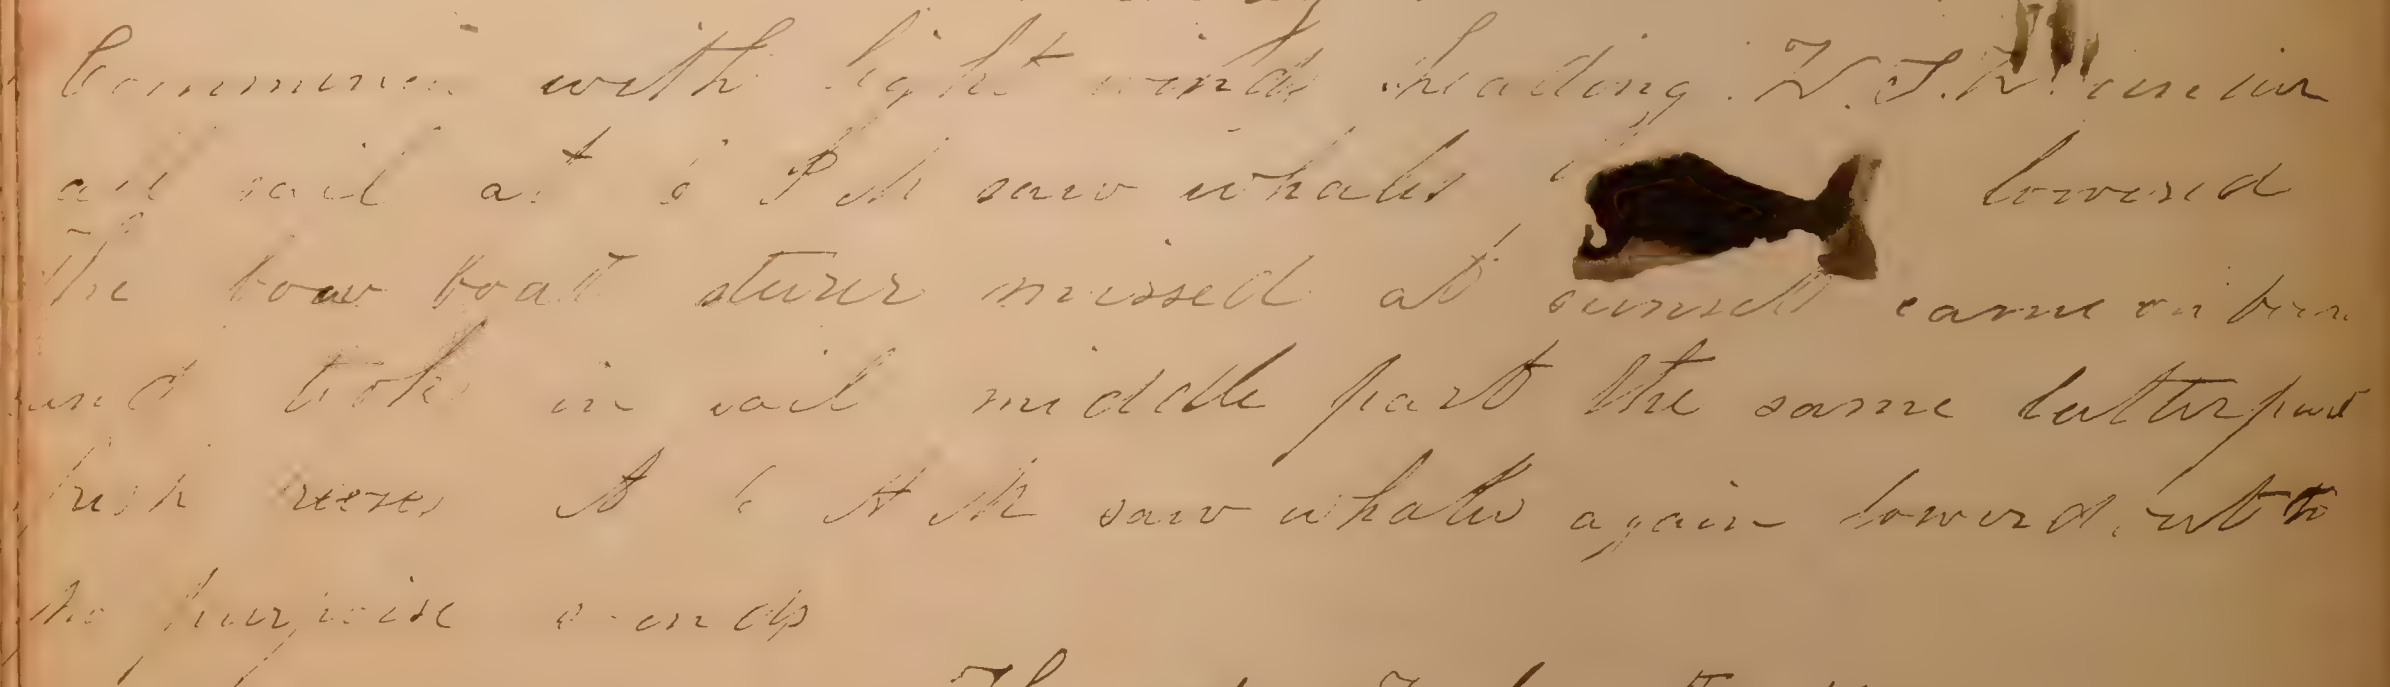 Commines with light winds heading W.S.W. under
all sail at 6 P M saw whales lowered
the bow boat sturer missed at sunsett came on boar
and took in sail middle part the same latter part
fresh reeses At 6 A M saw whales again lowerd but to
no purpoise so ends